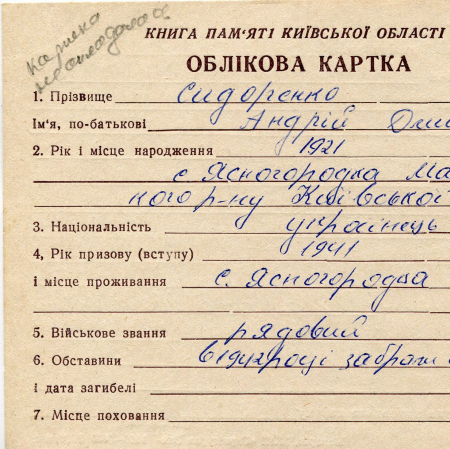 картка
КНИГА ПАМ'ЯТІ КИЇВСЬКОЇ ОБЛАСТІ
ОБЛІКОВА КАРТКА
1. Прізвище Сидоренко
Ім'я, по-батькові Андрій
2. Рік і місце народження 1921
с Ясногородка Ма
кого р-ну Київської
3. Національність українець
4, Рік призову (вступу) 1941
і місце проживання с. Ясногородка
5. Військове звання рядовий
6. Обставини в 1942 році забран
і дата загибелі
7. Місце поховання